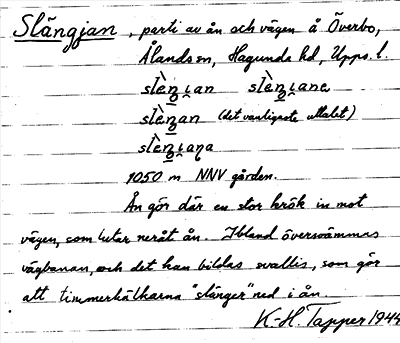 Slängjan, parti av ån och vägen å Överbo,
Ålands sn, Hagunda hd, Upps. l.
slèŋɩ̯an slèŋɩ̯ane
slèŋan (det vanligaste uttalet)
slèŋɩ̯aƞa
1050 m NNV gården.
Ån gör där en stor krök in mot
vägen, som lutar neråt ån. Ibland översvämmas
vägbanan, och det kan bildas svallis, som gör
att timmerkälkarna "slänger" ned i ån.
K-H. Tapper 1944